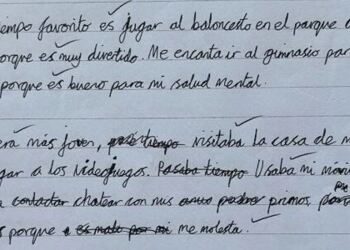 empo favorito es jugar al baloncesto en el parque
orque es muy divertido. Me encanta ir al gimnasio par
porque es bueno para mi salud mental.
era más joven, visitaba la casa de m
gar a los videojuegos. Pasaba tiempo Usaba mi móvi
a contactar chatear con mis primos
s porque es malo por mi me molesta.